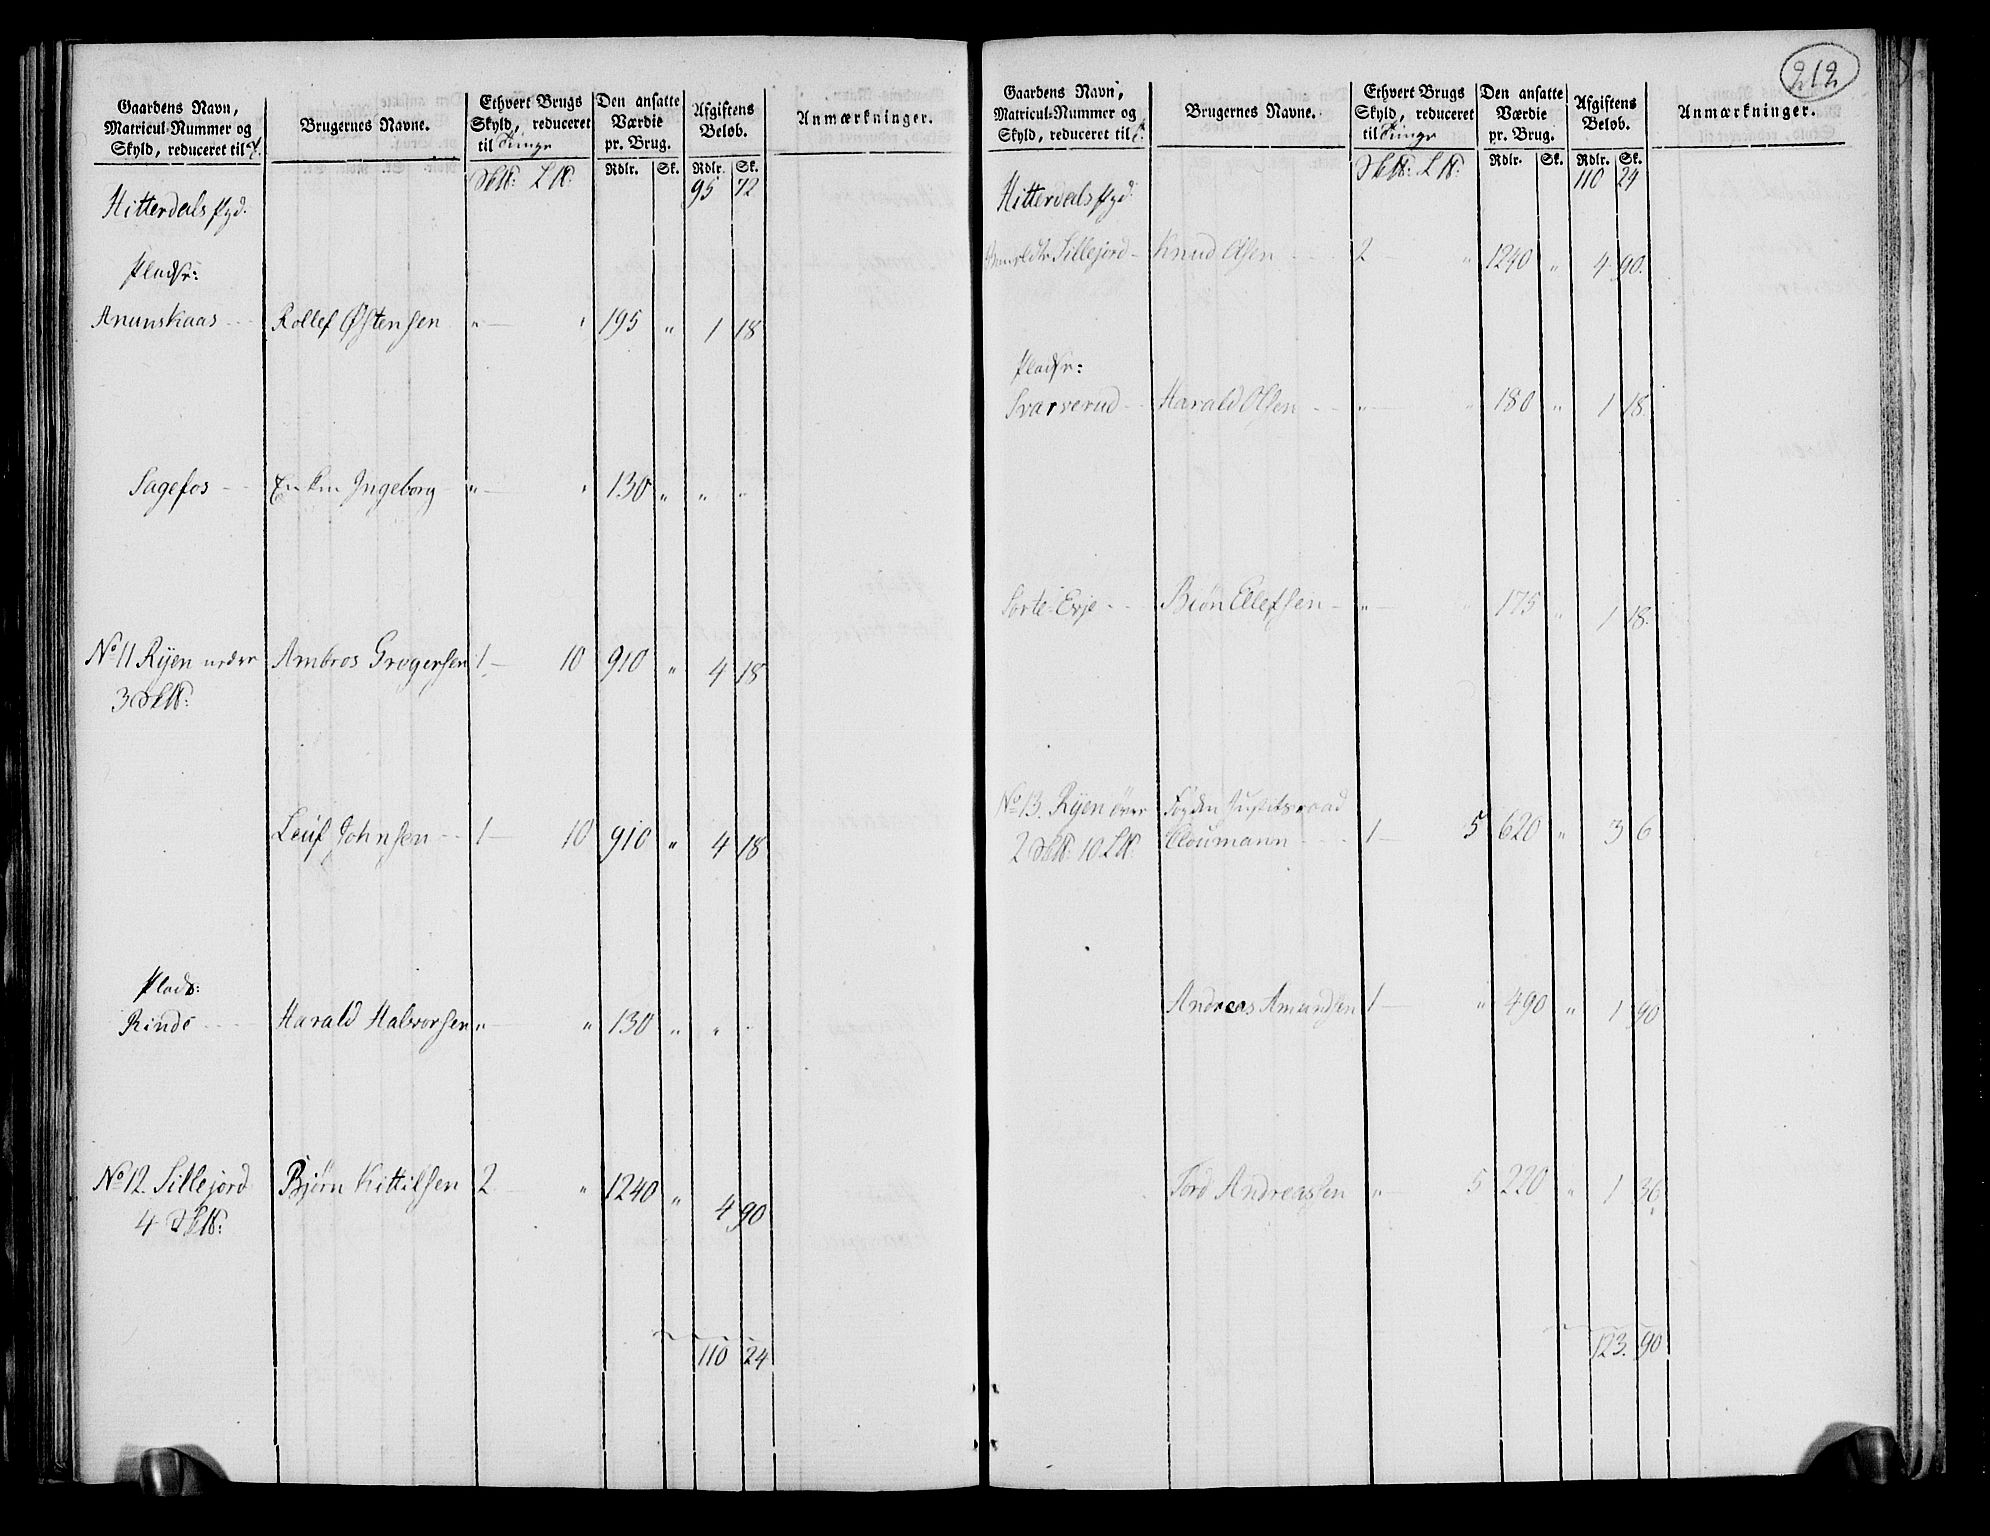 Gaardens Navn,
Matricul-Nummer og
Skyld, reduceret til
Brugernes Navne.
Ethvert Brugs
Skyld, reduceret
til Tunge
Den ansatte
Værdie
pr. Brug.
Afgiftens
Beløb.
Anmærkninger.
Rdlr. Sk. Rdlr. Sk.
95 72
Hitterdals
Pladse:
Anunskaas Rollef Østensen " " 195 " 1 18
Sagefos Enken Ingeborg " " 130 " " "
No 11 Ryen nedre Ambros Grogersen 1 10 910 " 4 18
3
Leuf Johnsen 1 10 910 " 4 18
Plads:
Rinde Harald Halvorsen " " 130 " " "
No 12. Lillejord Bjørn Kittilsen 2 " 1240 " 4 90
4
110 24
212
Gaardens Navn,
Matricul-Nummer og
Skyld, reduceret til
Brugernes Navne.
Ethvert Brugs
Skyld, reduceret
til Tunge
Den ansatte
Værdie
pr. Brug.
Afgiftens
Beløb.
Anmærkninger.
Rdlr. Sk. Rdlr. Sk.
110 24
Hitterdals
Lillejord Knud Olsen 2 " 1240 " 4 90.
Pladse:
Svarverud Harald Olsen " " 180 " 1 18
Sorte-Evje Biön Ellefsen " " 175 " 1 18.
No 13. Ryen övre Fogden Justitsraad
2 10 Cloumann 1 5 620 " 3 6
Andreas Amundsen 1 " 490 " 1 90
Tord Andreassen " 5 220 " 1 36
123. 90